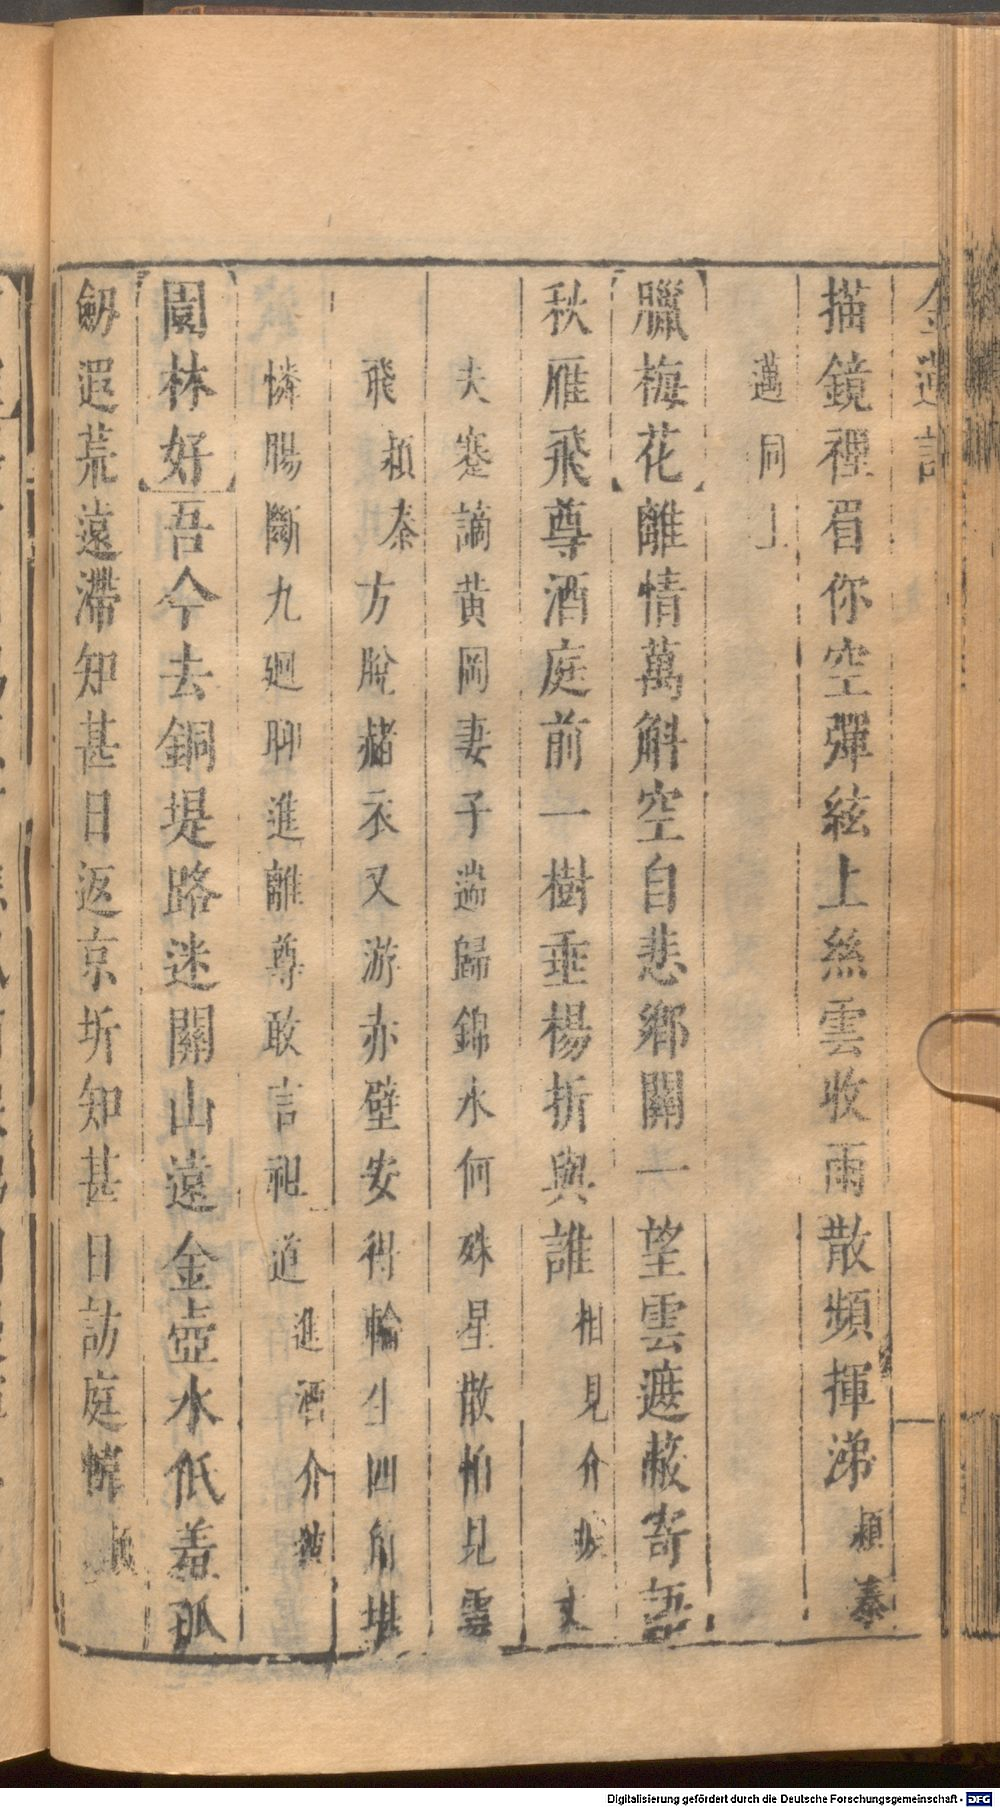 金蓮記
描鏡裡眉你空彈絃上絲雲收雨散頻揮涕穎秦
邁同上
臘梅花離情萬斛空自悲鄉關一望雲遮蔽寄語
秋雁飛尊酒庭前一樹垂楊折與誰相見介坡丈
夫蹇謫黃岡妻子遄歸錦水何殊星散怕見雲
飛穎秦方脫赭衣又游赤壁安得輪生四角堪
憐腸斷九廻聊進離尊敢言祖道進酒介坡
園林好吾今去銅堤路迷關山遠金壺水低羞孤
劒遐荒遠滯知甚日返京圻知甚日訪庭幃
Digitalisierung gefördert durch die Deutsche Forschungsgemeinschaft - DFG